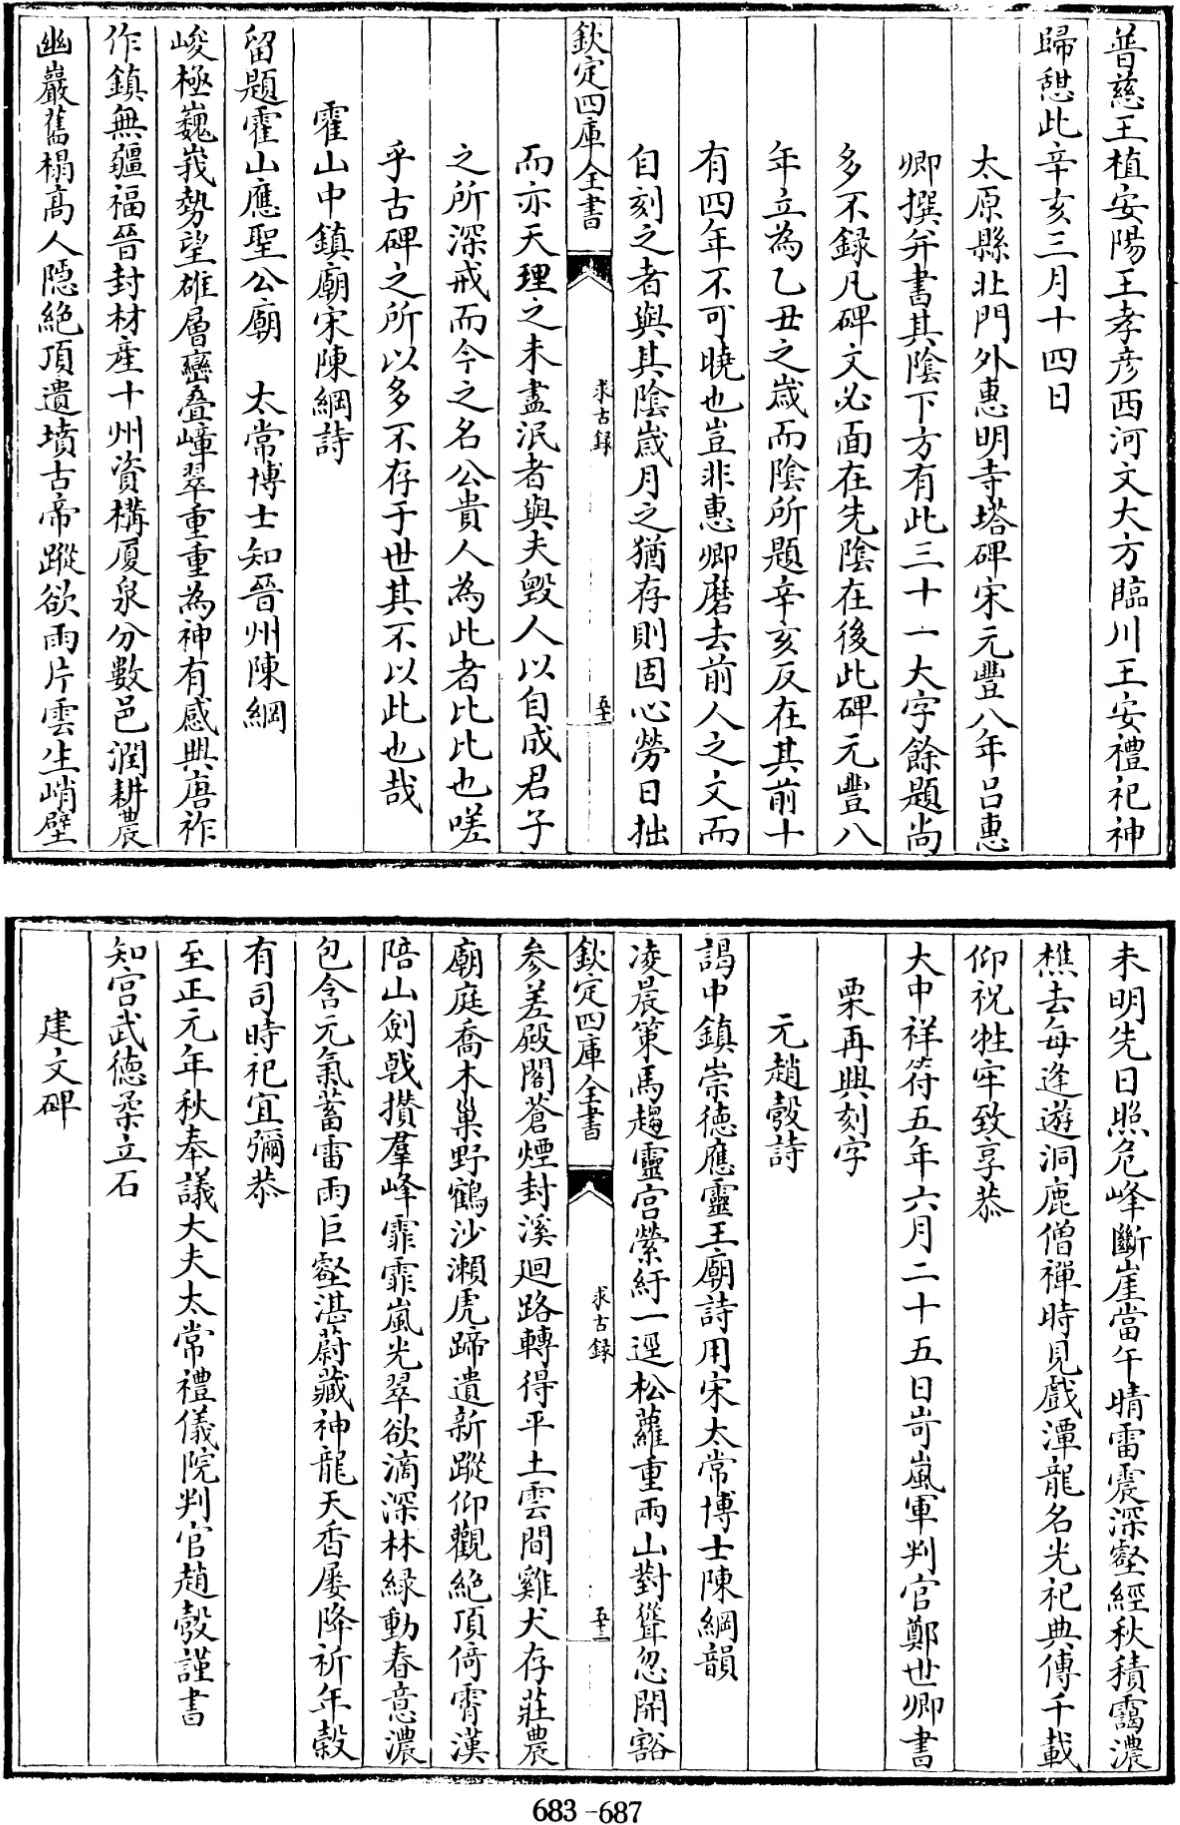 普慈王植安陽王孝彦西河文大方臨川王安禮祀神
歸憇此辛亥三月十四日
太原縣北門外惠明寺塔碑宋元豐八年吕惠
卿撰并書其陰下方有此三十一大字餘題尚
多不録凡碑文必面在先陰在後此碑元豐八
年立為乙丑之歳而陰所題辛亥反在其前十
有四年不可曉也豈非惠卿磨去前人之文而
自刻之者與其陰歳月之猶存則固心勞日拙
欽定四庫全書
求古録
五十二
而亦天理之未盡泯者與夫毁人以自成君子
之所深戒而今之名公貴人為此者比比也嗟
乎古碑之所以多不存于世其不以此也哉
霍山中鎮廟宋陳綱詩
留題霍山應聖公廟　太常博士知晉州陳綱
峻極巍峩勢望雄層巒叠嶂翠重重為神有感興唐祚
作鎮無疆福晉封材産十州資構厦泉分數邑潤耕農
幽巖舊榻高人隠絶頂遺墳古帝蹤欲雨片雲生峭壁
未明先日照危峰斷崖當午晴雷震深壑經秋積靄濃
樵去每逢遊洞鹿僧禪時見戲潭龍名光祀典傳千載
仰祝牲牢致享恭
大中祥符五年六月二十五日岢嵐軍判官鄭世卿書
栗再興刻字
元趙彀詩
謁中鎮崇德應靈王廟詩用宋太常博士陳綱韻
凌晨策馬趨靈宫縈紆一逕松蘿重兩山對聳忽開豁
欽定四庫全書
求古録
五十三
参差殿閣蒼煙封溪迴路轉得平土雲間雞犬存莊農
廟庭喬木巢野鶴沙瀨虎蹄遺新蹤仰觀絶頂倚霄漢
陪山劍㦸攅羣峰霏霏嵐光翠欲滴深林緑動春意濃
包含元氣蓄雷雨巨壑湛蔚藏神龍天香屢降祈年穀
有司時祀宜彌恭
至正元年秋奉議大夫太常禮儀院判官趙彀謹書
知宫武德柔立石
建文碑
683-687